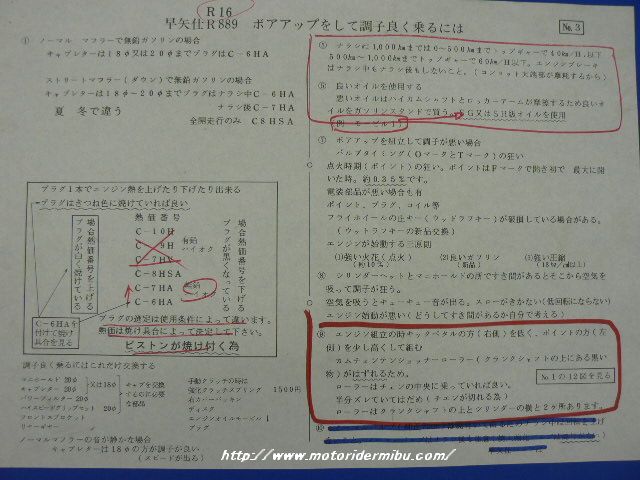 R16
早矢仕R889 ボアアップをして調子良く乗るには
No.3
① ノーマル マフラーで無鉛ガソリンの場合
キャブレターは18φ又は20φまでプラグはC-6HA
ストリートマフラー(ダウン)で無鉛ガソリンの場合
キャブレターは18φ~20φまでプラグはナラシ中C-6HA
ナラシ後C-7HA
夏 冬で違う
全開走行のみ C8HSA
プラグ1本でエンジン熱を上げたり下げたり出来る
プラグはきつね色に焼けていれば良い
熱価番号
C-10H
C-9H
C-7HV
C-8HSA
C-7HA
C-6HA
有鉛
ハイオク
プラグが白く焼けている
場合熱価番号を上げる
プラグが黒くなっている
場合熱価番号を下げる
C-6HAを
付けて焼け具合を見る
プラグの選定は使用条件によって違います。
熱価は焼け具合によって決定して下さい。
ピストンが焼け付く為
調子良く乗るにはこれだけ交換する
マニホールド 20φ
キャブレター 20φ
パワーフィルター 20φ
ハイスピードグリップセット 20φ
フロントスプロケット
リヤーギヤー
又は18φ
キャブを交換するのに必要な部品
手動クラッチの時は
強化クラッチスプリング 1500円
右カバーパッキン
ディスク
エンジンオイルモービル 1
プラグ
ノーマルマフラーの音が静かな場合
キャブレターは18φの方が調子が良い
(スピードが出る)
⑤ ナラシに1,000kmまでは0~500kmまでトップギャーで40km/H.以下
500km~1,000kmまでトップギャーで60km/H以下。エンジンブレーキ
はナラシ中もナラシ後もしないこと。(コンロット大端部が摩耗するから)
⑥ 良いオイルを使用する
悪いオイルはハイカムシャフトとロッカーアームが摩擦するため良いオ
イルをガソリンスタンドで買う。SG又はSH級オイルを使用
(例 モービル1)
⑦ ボアアップを組立して調子が悪い場合
バルブタイミング(OマークとTマーク)の狂い
点火時期(ポイント)の狂い。ポイントはFマークで開き初で 最大に開
いた時。約0.35%です。
電装部品が悪い場合も有
ポイント、プラグ、コイル等
フライホイールの止キー(ウッドラフキー)が破損している場合がある。
(ウットラフキーの新品交換)
エンジンが始動する三原則
(1)強い火花(点火) (2)良いガソリン (3)強い圧縮
(新品)
⑧ シリンダーヘットとマニホールドの所ですき間があるとそこから空気を
吸って調子が狂う。
空気を吸うとキューキュー音が出る。スローがきかない(低回転にならない)
エンジン始動が悪い(どうしてすき間があるか自分で考える)
⑨ エンジン組立の時キックペタルの方(右側)を低く、ポイントの方(左
側)を少し高くして組む
カムチェンテンショナーローラー(クランクシャフトの上にある黒い
物)がはずれるため。
ローラーはチェンの中央に乗っていれば良い。
半分ズレていてはだめ(チエンが切れる為)
ローラーはクランクシャフトの上とシリンダーの横と2ヶ所あります。
No1の12図を見る
http://www.motoridermibu.com/